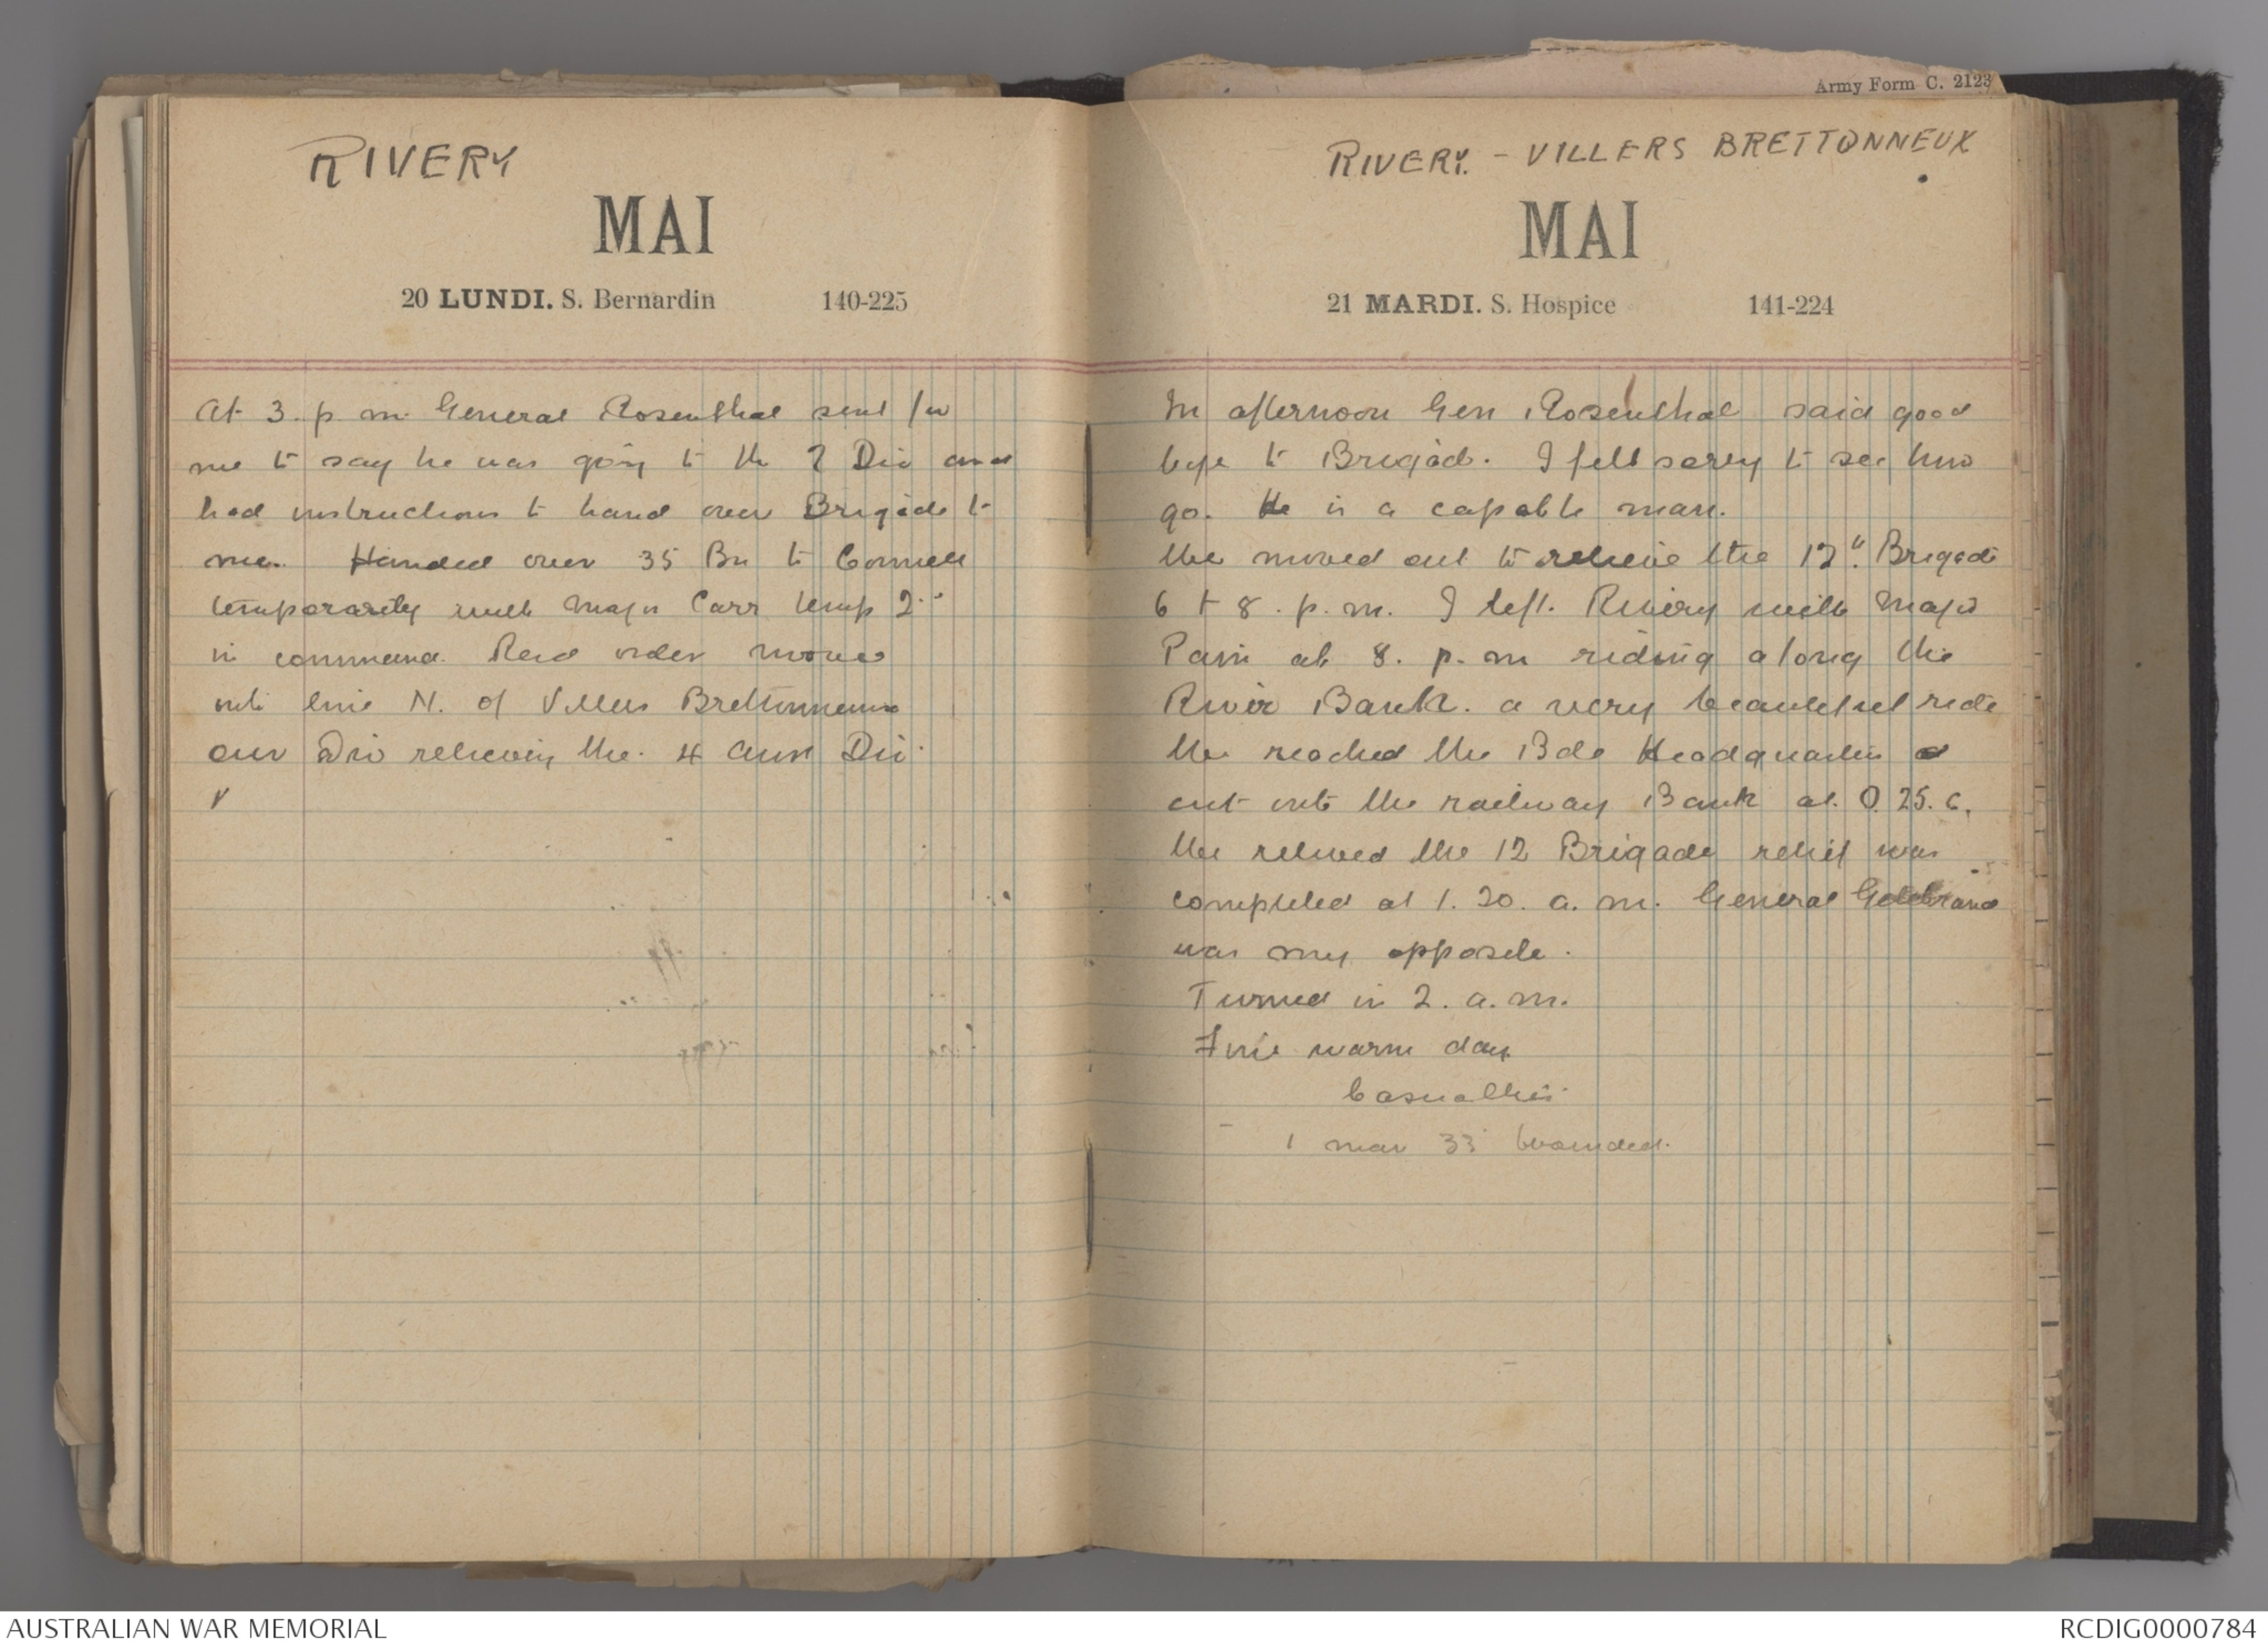 RIVERY
MAI
20 LUNDI. S. Bernardin 140-225
At 3. p. m. General Rosenthal sent for
me to say he was going to the 2 Div and
had instructions to hand over Brigade to
me. Handed over 35 Bn to Connell
temporarily with Major Carr temp 2nd
in command. Recd order move
into line N. of Villers Brettonneux
our Div relieving the 4 Aust Div.
Army Form C. 2123
RIVERY. - VILLERS BRETTONNEUX
MAI
21 MARDI. S. Hospice 141-224
In afternoon Gen Rosenthal said good
bye to Brigade. I felt sorry to see him
go. He is a capable man.
We moved out to relieve the 12th Brigade
6 to 8. p. m. I left Rivery with Major
Pain at 8. p. m riding along the
River Bank. a very beautiful ride
We reached the Bde Headquarters
cut into the railway Bank at O. 25. c.
We relieved the 12 Brigade relief was
completed at 1. 20. a. m. General Gellibrand
was my opposite.
Turned in 2. a. m.
Fine warm day
Casualties
1 man 33 Wounded.
AUSTRALIAN WAR MEMORIAL
RCDIG0000784